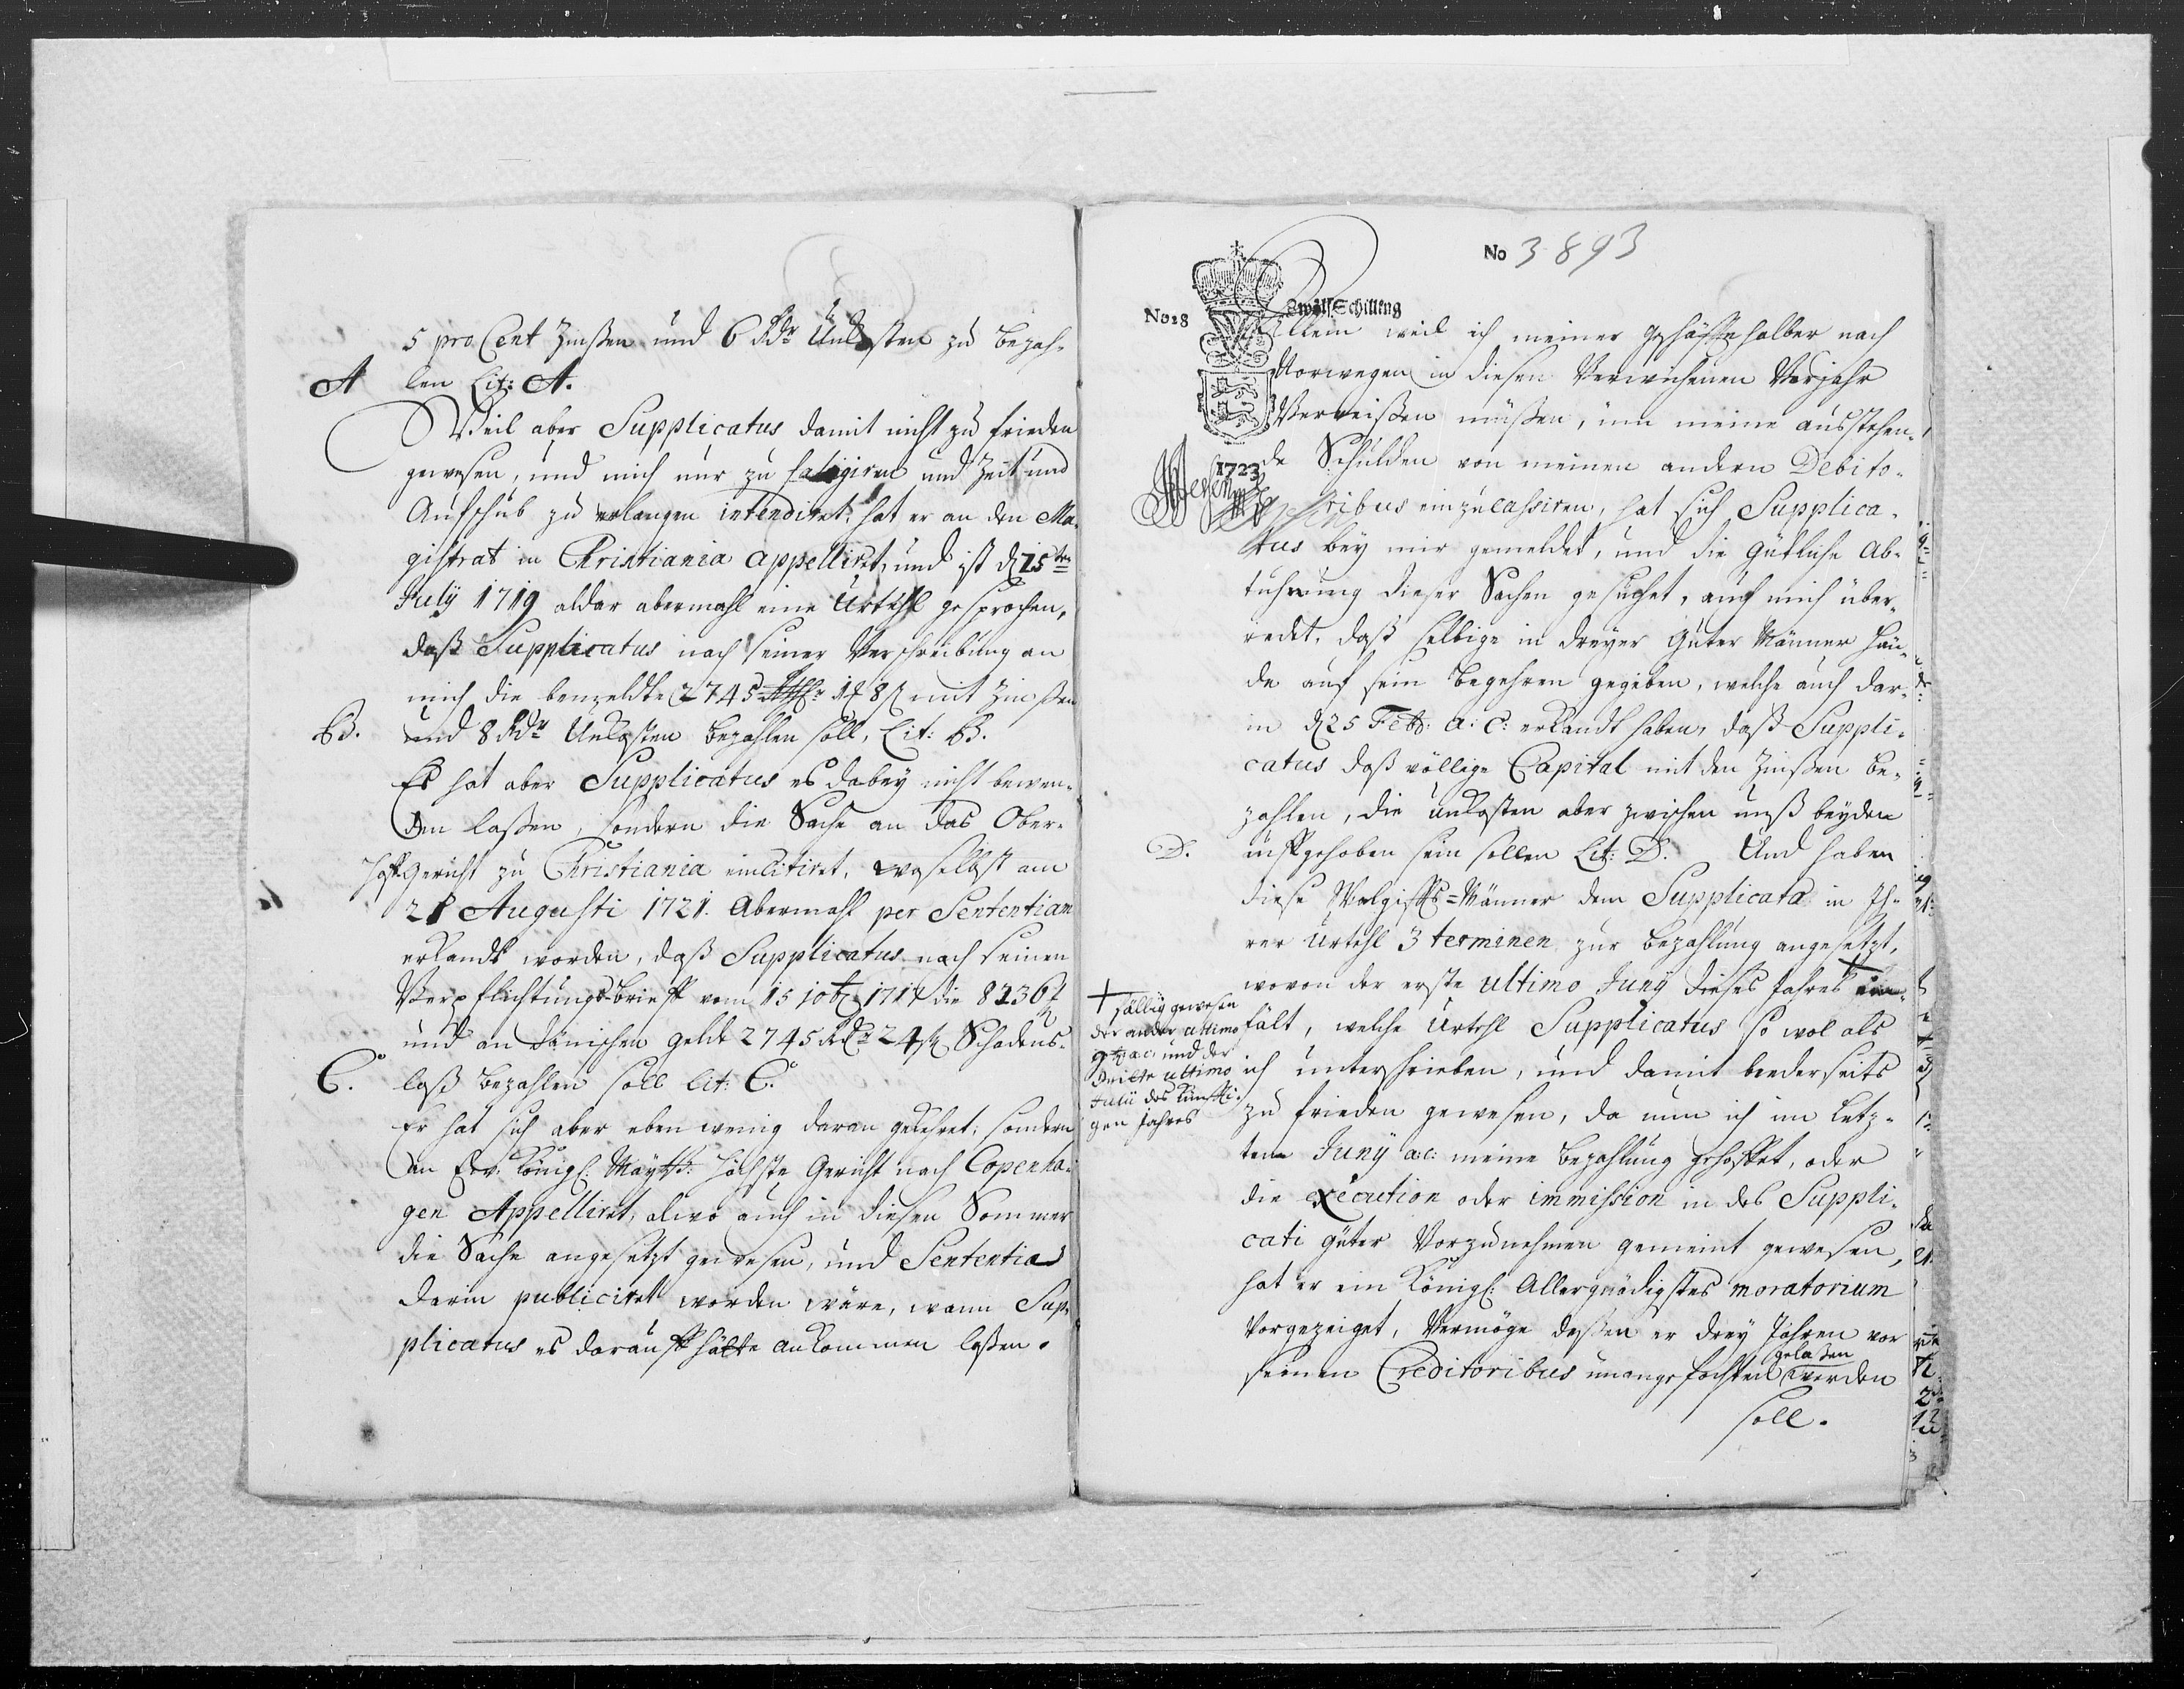 5 pro Cent Zinßen und 6 Rdr Unkosten zu bezah-
A len Lit: A.
Weil aber Supplicatus damit nicht zu frieden
gewesen, und mich nur zu fatigiren und Zeit und
Aufschub zu erlangen intendiret, hat er an den Ma-
gistrat in Christiania appelliret, und ist d 15ten
July 1719 aldar abermahl eine Urtehl gesprochen,
daß Supplicatus nach seiner Verschreibung an
mich die bemeldte 2745 mit Zinßen
B. und 8 Rdr Unkosten bezahlen soll, Lit: B.
Es hat aber Supplicatus es dabey nicht bewen-
den laßen, sondern die Sache an das Ober-
Hoffgericht zu Christiania incitiret, woselbst am
21 Augusti 1721. Abermahl per Sententiam
erkandt worden, daß Supplicatus nach seinen
Verpflichtungs-brieff vom 15 10b 1717 die
und an dänischen gelde 2745 Rdr 24 ß Schadens-
C. loß bezahlen soll Lit: C.
Er hat sich aber eben wenig daran gekehret, sondern
an Ew. Königl: Maytt: höchste Gericht nach Copenha-
gen Appelliret, alwo auch in diesen Sommer
die Sache angesetzt gewesen, und Sententia
darin publiciret worden wäre, wann Sup-
plicatus es darauff hätte ankommen laßen.
No 3893
No 18 Zwölf Schilling
1723
Allein weil ich meiner geschäffte halber nach
Norwegen in diesen Verwichenen Vorjahr
Verreißen müßen, um meine ausstehen-
de Schulden von meinen andern Debito-
ribus einzucassiren, hat sich Supplica-
tus bey mir gemeldet, und die gütliche Ab-
tuhrung dieser Sachen gesuchet, auch mich über-
redet, daß selbige in dreyer guter Männer Hän-
de auf sein begehren gegeben, welche auch dar-
in d 25 Feb: a: c: erkandt haben, daß Suppli-
catus daß völlige Capital mit den Zinßen be-
zahlen, die unkosten aber zwischen unß beyden
D. auffgehoben sein sollen Lit: D. Und haben
diese Männer dem Supplicato in Ih-
rer Urtehl 3 terminen zur bezahlung angesetzt,
wovon der erste ultimo Juny dieses Jahres
fält, welche Urtehl Supplicatus so wol als
ich unterschrieben, und damit beederseits
zu frieden gewesen, da nun ich im Letz-
ten Juny a:c: meine bezahlung gehoffet, oder
die execution oder immission in des Suppli-
cati güter Vorzunehmen gemeint gewesen,
hat er ein Königl: Allergnädigstes moratorium
Vorgezeiget, Vermöge deßen er drey Jahren vor
seinen Creditoribus unangefochten werden
gelaßen
soll.
+ fällig gewesen
der ander ultimo
a:c: und der
dritte ultimo
Julii des künffti-
gen Jahres